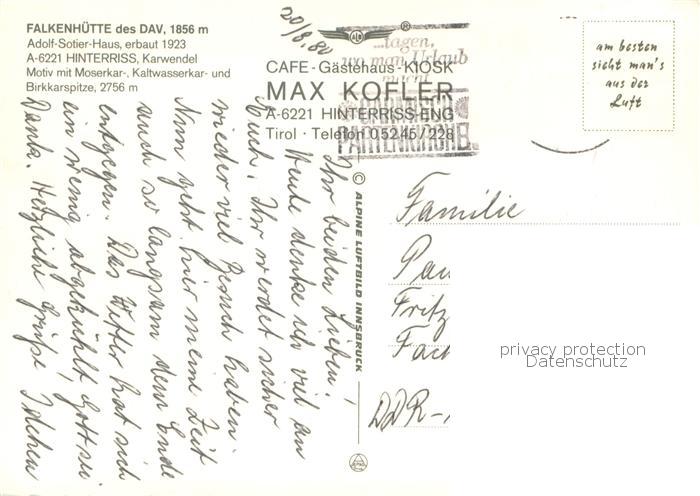 FALKENHÜTTE des DAV, 1856 m
Adolf-Sotier-Haus, erbaut 1923
A-6221 HINTERRISS, Karwendel
Motiv mit Moserkar-, Kaltwasserkar- und
Birkkarspitze, 2756 m
20/8.80
ALB
...tagen,
wo man Urlaub
macht
GARMISCH
PARTENKIRCHEN
CAFE - Gästehaus - KIOSK
MAX KOFLER
A-6221 HINTERRISS-ENG
Tirol · Telefon 05245/228
am besten
sieht man's
aus der
Luft
Ihr beiden Lieben!
Heute denke ich viel an
Euch. Ihr werdet sicher
wieder viel Besuch haben.
Nun geht hier meine Zeit
auch so langsam dem Ende
entgegen. Das Wetter hat sich
ein wenig abgekühlt, Gott sei
Dank. Herzliche Grüße
© ALPINE LUFTBILD INNSBRUCK
Familie
Pau
Fritz
DDR-
privacy protection
Datenschutz